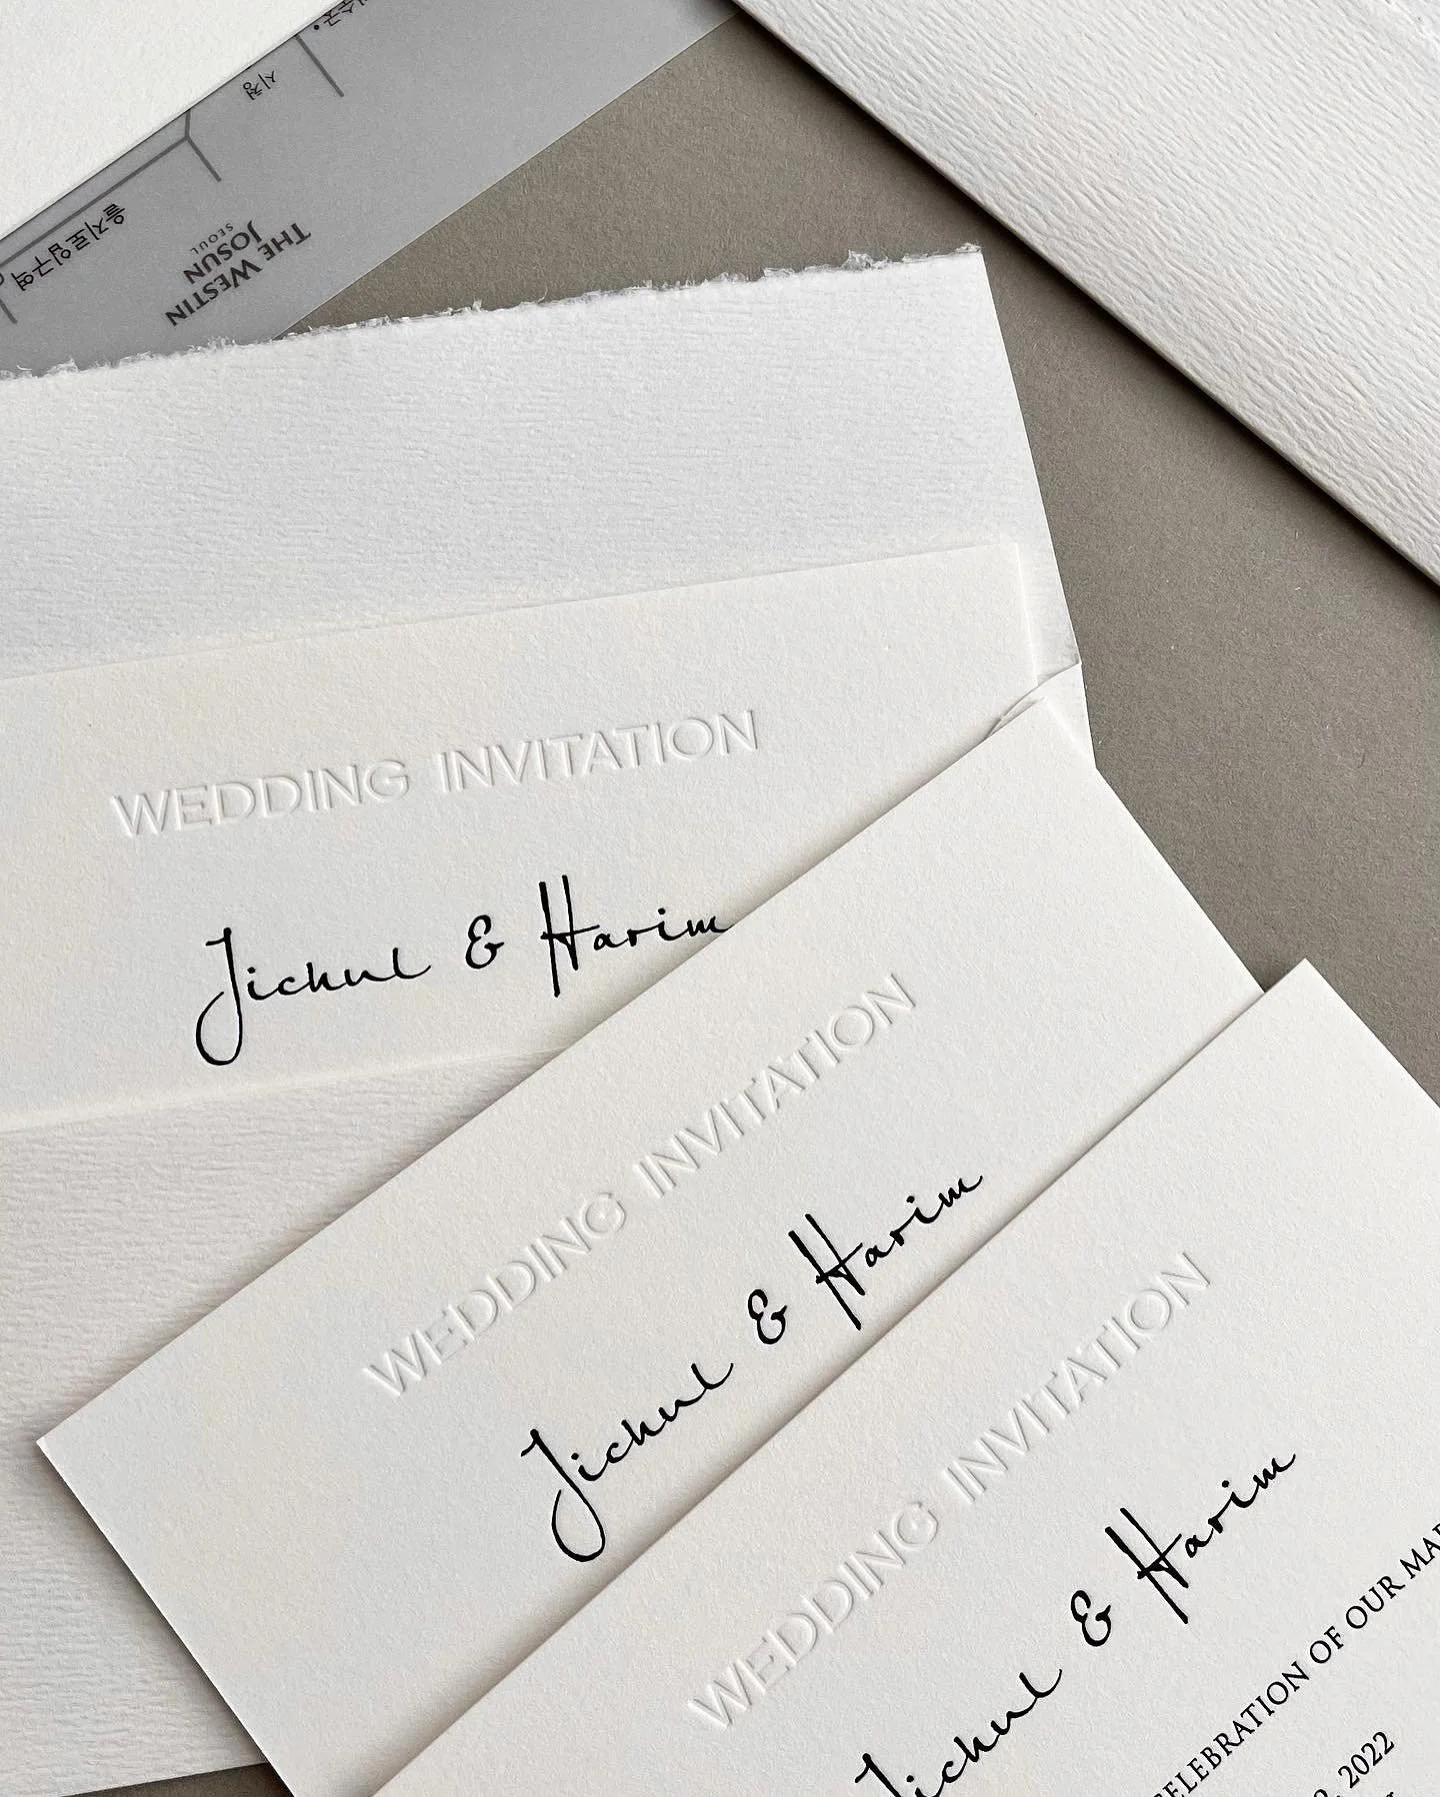 시청
을지로입구역
THE WESTIN
JOSUN
SEOUL
WEDDING INVITATION
Jichul & Harim
WEDDING INVITATION
Jichul & Harim
WEDDING INVITATION
Jichul & Harim
OF OUR
2022